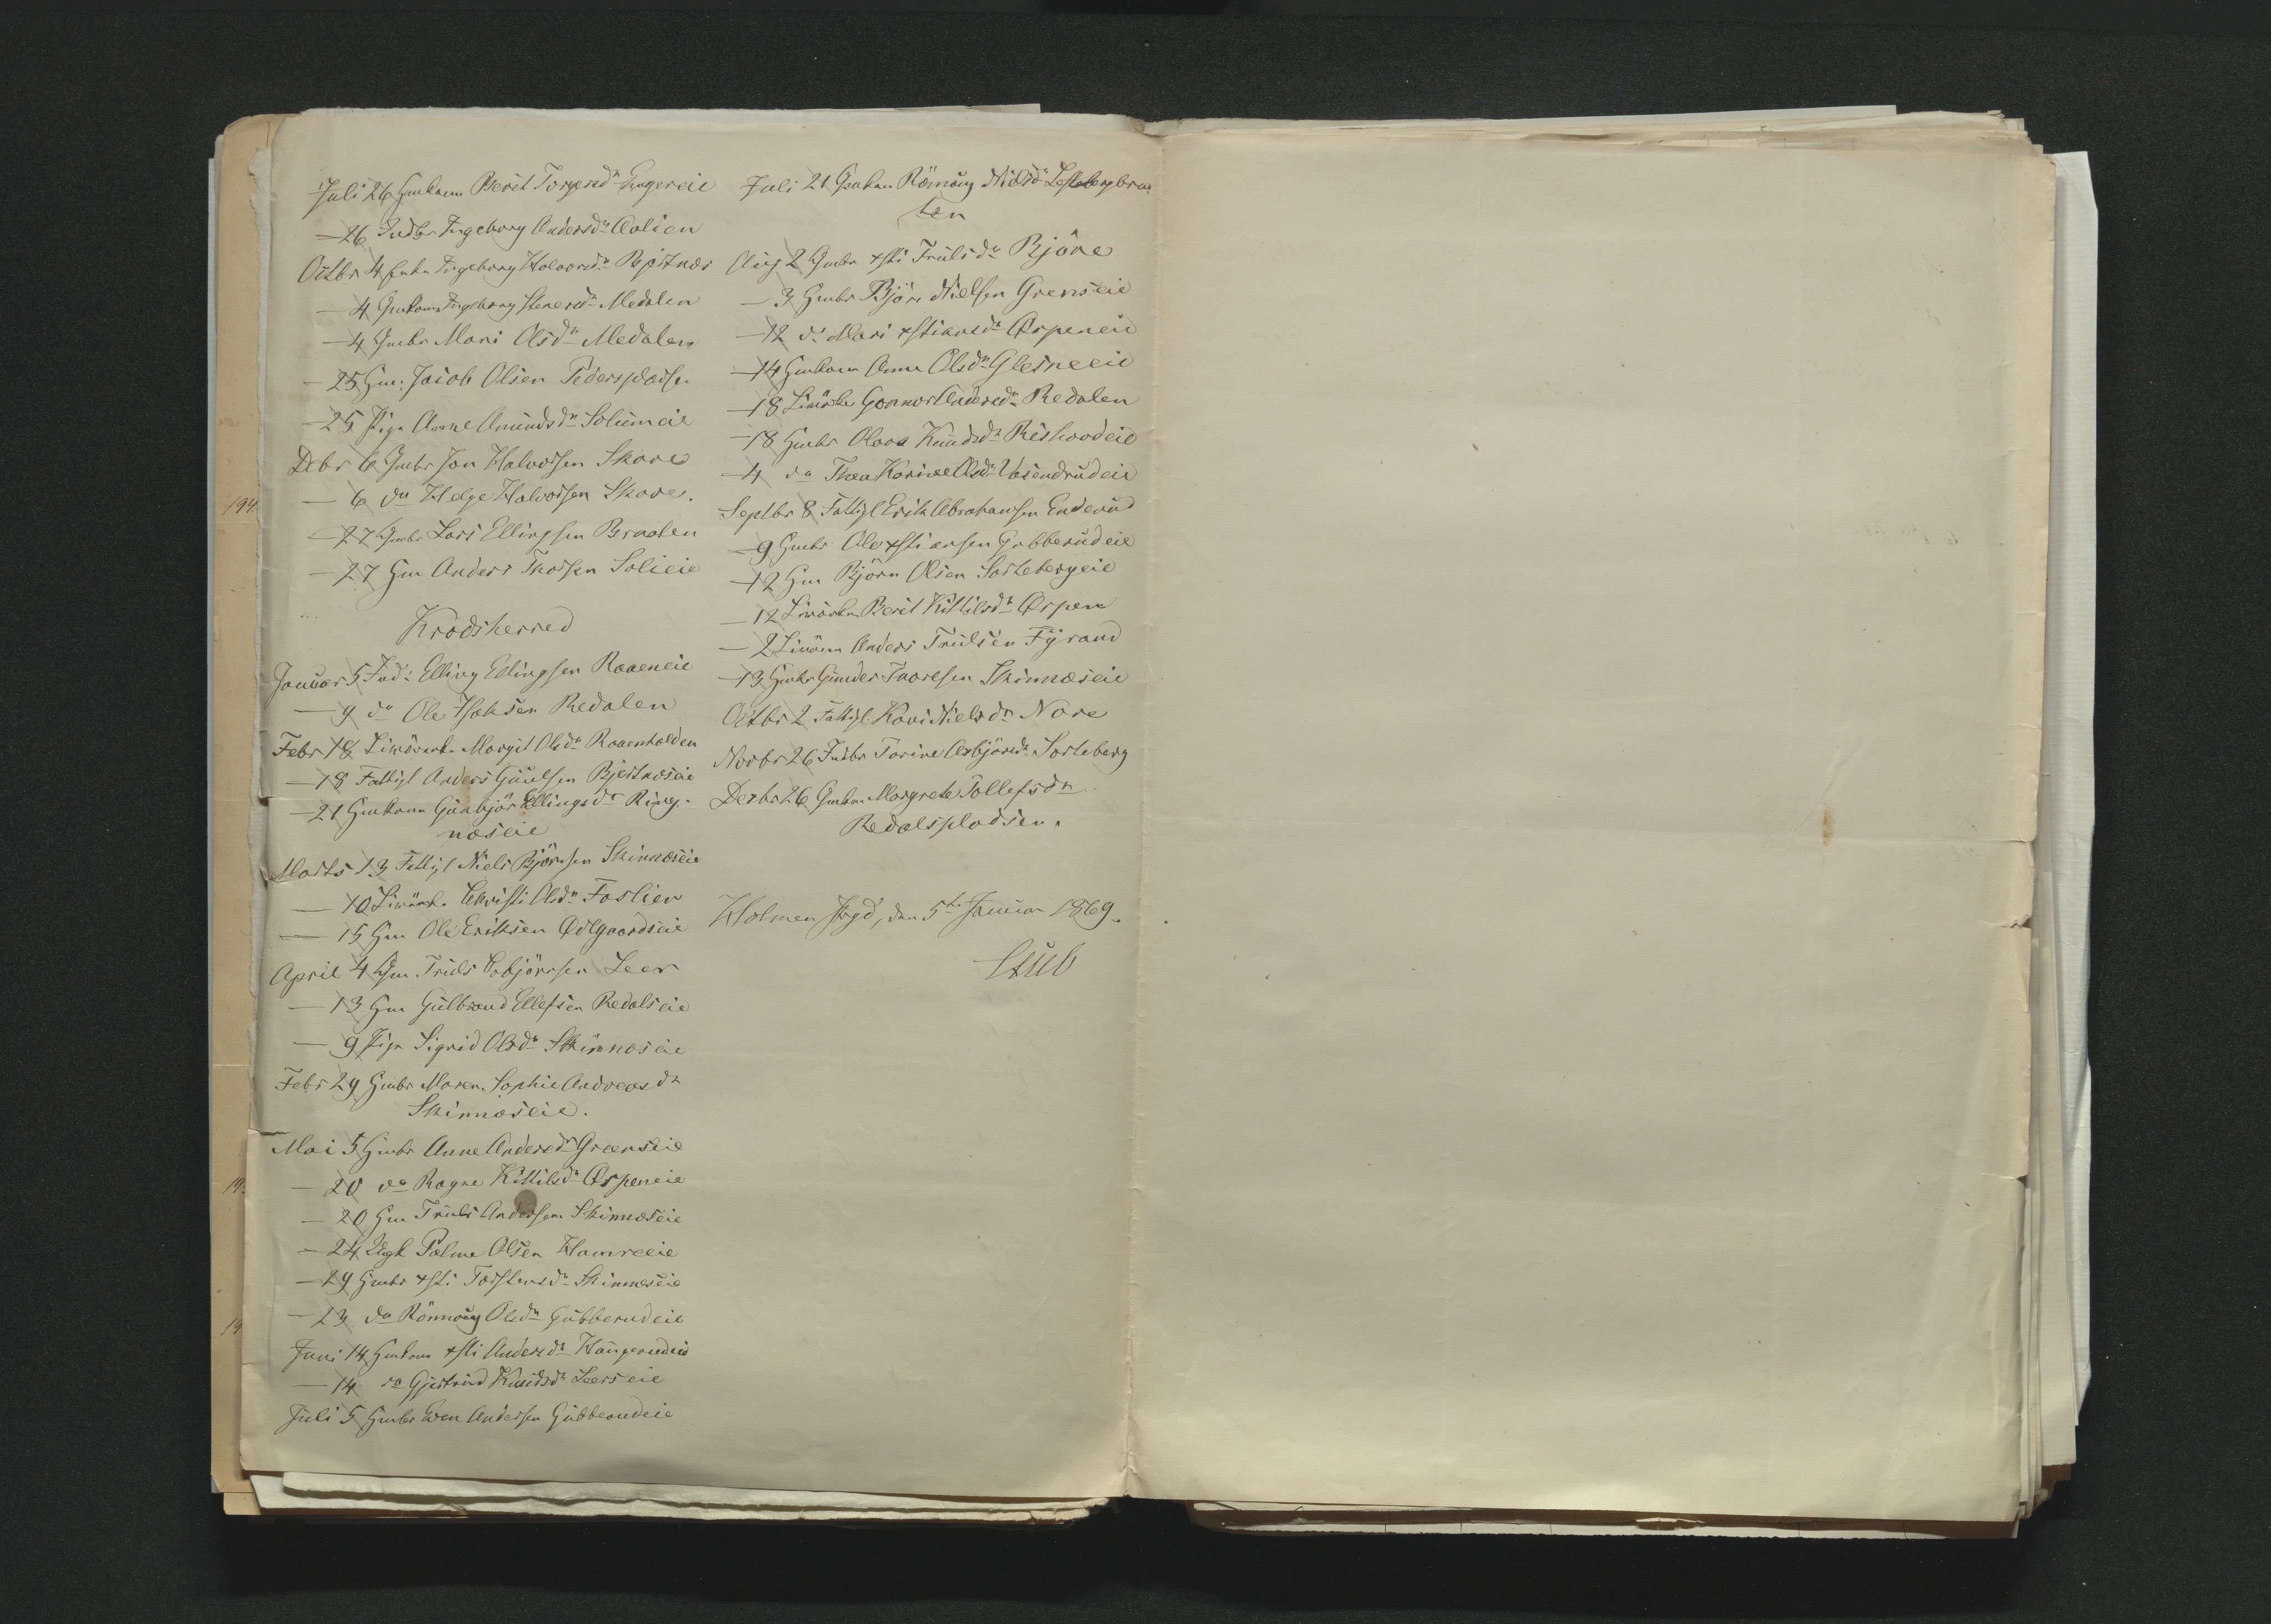 Juli 26 Gmkone Berit Torgersdr Engereie
— 26 Indbr Ingeborg Andersdr Aalien
Octbr 4 Ingeborg Halvorsdr Bjertnæs
— 4 Gmkone Ingeborg Stenersdr Medalen
— 4 Gmbr Mari Olsdr Medalen
— 25 Hm: Jacob Olsen Pederspladsen
— 25 Pige Anne Amundsdr Solumeie
Debr 6 Gmbr Jon Halvorsen Skare
— 6 do Helge Halvorsen Skare.
— 27 Gmbr Lars Ellingsen Braaten
— 27 Hm Anders Thorsen Solieie
Krødsherred
Januar 5 Ind: Elling Ellingsen Raaeneie
— 9 do Ole Isaksen Redalen
Febr 18 Margit Olsdr Raaenhalden
— 18 Fattigl Anders Gulsen Bjertnæseie
— 21 Hmkone Gunbjør Ellingsdr Ring-
næseie
Marts 13 Fattigl Niels Bjørnsen Skinnæseie
— 10 Christi Olsdr Foslien
— 15 Hm Ole Eriksen Ødegaardseie
April 4 Gm Truls Leer
— 13 Hm Gulbrand Ellefsen Redalseie
— 9 Pige Sigrid Olsdr Skinnæseie
Febr 29 Hmbr Maren Sophie Andreasdr
Skinnæseie.
Mai 5 Hmbr Anne Andersdr Grænseie
— 20 do Ragne Kittilsdr Aspeneie
— 20 Hm Truls Andersen Skinnæseie
— 24 Ungk Palme Olsen Hamreeie
— 29 Hmbr Xsti Torstensdr Skinnæseie
— 23 do Rønnoug Olsdr Gubberudeie
Juni 14 Hmkone Xsti Andersdr Haugerudeie
— 14 do Gjertrud Knudsdr Leerseie
Juli 5 Hmbr Even Andersen Gubberudeie
Juli 21 Gmkone Rønnoug Nielsdr Lesteberg braa
ten
Aug 2 Gmbr Xsti Trulsdr Bjøre
— 3 Hmbr Bjørn Nielsen Grenseie
— 12 do Mari Xstiansdr Aspeneie
— 14 Hmkone Anne Olsdr Glesneeie
— 18 Gunnor Andersdr Redalen
— 18 Hmbr Olava Knudsdr Rishovdeie
— 4 do Thea Karine Olsdr
Septbr 8 Fattigl Erik Abrahamsen Enderud
— 9 Hmbr Ole Xstiansen Gubberudeie
— 12 Hm Bjørn Olsen Sortebergeie
— 12 Berit Kittilsdr Aspen
— 2 Anders Trulsen Fyrand
— 13 Hmbr Gunder Thoresen Skinnæseie
Octbr 2 Fattigl Kari Nielsdr Nore
Novbr 26 Indbr Torine Asbjørnsdr Sorteberg
Decbr 26 Gmkone Margrete Tollefsdr
Redalspladsen.
Holmen Prgd, den 5te Januar 1869.
Stub